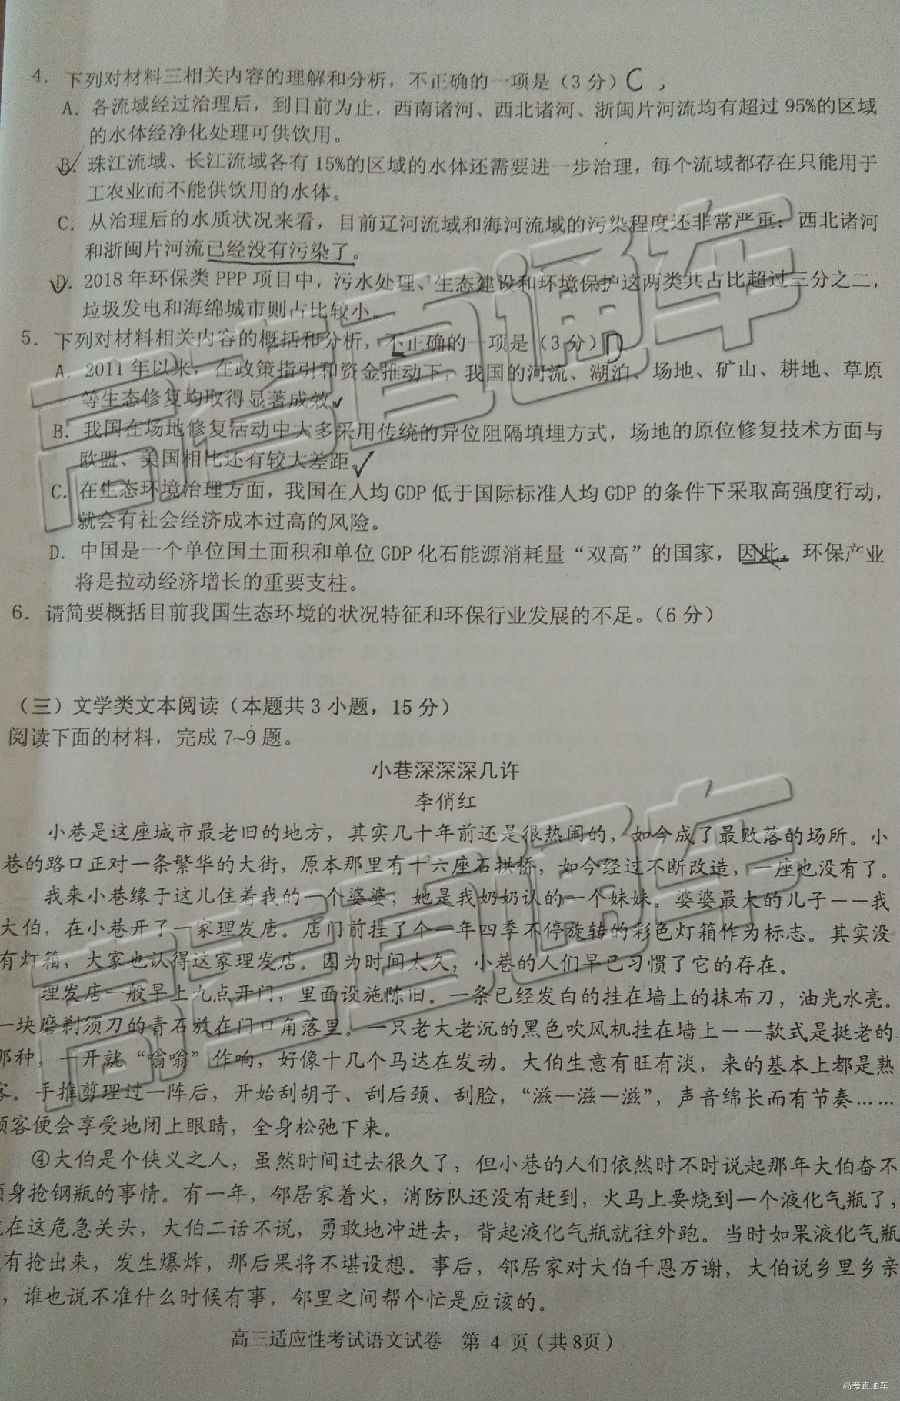 4．下列对材料三相关内容的理解和分析，不正确的一项是（3分）C，
A．各流域经过治理后，到目前为止，西南诸河、西北诸河、浙闽片河流均有超过95%的区域
的水体经净化处理可供饮用。
B．珠江流域、长江流域各有15%的区域的水体还需要进一步治理，每个流域都存在只能用于
工农业而不能供饮用的水体。
C．从治理后的水质状况来看，目前辽河流域和海河流域的污染程度还非常严重；西北诸河
和浙闽片河流已经没有污染了。
D．2018年环保类PPP项目中，污水处理、生态建设和环境保护这两类共占比超过三分之二，
垃圾发电和海绵城市则占比较小。
5．下列对材料相关内容的概括和分析，不正确的一项是（3分）D
A．2011年以来，在政策指引和资金推动下，我国的河流、湖泊、场地、矿山、耕地、草原
等生态修复均取得显著成效。
B．我国在场地修复活动中大多采用传统的异位阻隔填埋方式，场地的原位修复技术方面与
欧盟、美国相比还有较大差距。
C．在生态环境治理方面，我国在人均GDP低于国际标准人均GDP的条件下采取高强度行动，
就会有社会经济成本过高的风险。
D．中国是一个单位国土面积和单位GDP化石能源消耗量“双高”的国家，因此，环保产业
将是拉动经济增长的重要支柱。
6．请简要概括目前我国生态环境的状况特征和环保行业发展的不足。（6分）
（三）文学类文本阅读（本题共3小题，15分）
阅读下面的材料，完成7~9题。
小巷深深深几许
李俏红
小巷是这座城市最老旧的地方，其实几十年前还是很热闹的，如今成了最败落的场所。小
巷的路口正对一条繁华的大街，原本那里有十六座石拱桥，如今经过不断改造，一座也没有了。
我来小巷缘于这儿住着我的一个婆婆，她是我奶奶认的一个妹妹。婆婆最大的儿子——我
大伯，在小巷开了一家理发店。店门前挂了个一年四季不停旋转的彩色灯箱作为标志。其实没
有灯箱，大家也认得这家理发店。因为时间太久，小巷的人们早已习惯了它的存在。
理发店一般早上九点开门，里面设施陈旧。一条已经发白的挂在墙上的抹布刀，油光水亮。
一块磨剃须刀的青石放在门口角落里。一只老大老沉的黑色吹风机挂在墙上——款式是挺老的
那种，一开就“嗡嗡”作响，好像十几个马达在发动。大伯生意有旺有淡，来的基本上都是熟
客。手推剪理过一阵后，开始刮胡子、刮后颈、刮脸，“滋—滋—滋”，声音绵长而有节奏……
顾客便会享受地闭上眼睛，全身松弛下来。
④大伯是个侠义之人，虽然时间过去很久了，但小巷的人们依然时不时说起那年大伯奋不
顾身抢钢瓶的事情。有一年，邻居家着火，消防队还没有赶到，火马上要烧到一个液化气瓶了，
在这危急关头，大伯二话不说，勇敢地冲进去，背起液化气瓶就往外跑。当时如果液化气瓶
有抢出来，发生爆炸，那后果将不堪设想。事后，邻居家对大伯千恩万谢，大伯说乡里乡亲
，谁也说不准什么时候有事，邻里之间帮个忙是应该的。
高三适应性考试语文试卷 第 4 页（共8页）
高考直通车
高考直通车
高考直通车